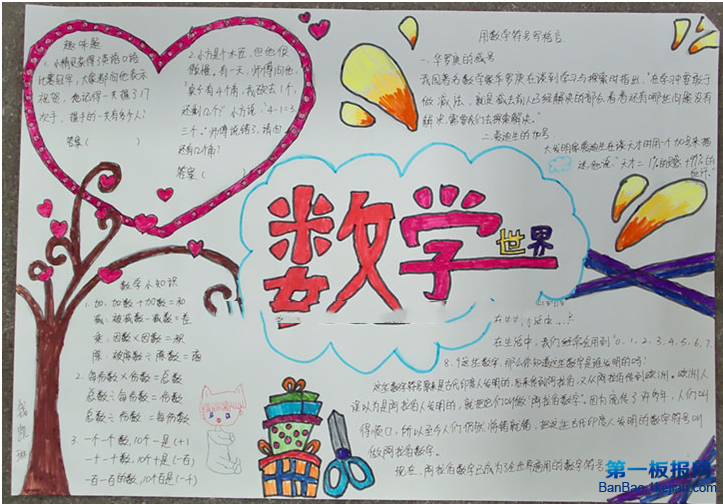 趣味题
1.小精灵获得了英语口语
比赛冠军,大家都向他表示
祝贺,他记得一共握了17
次手,握手的一共有多少人?
答案( )
2.小方是个木匠,但他很
傲慢。有一天,师傅问他:
"桌子有4个角,我砍去1个,
还剩几个?"小方说:"4-1=3
三个。"师傅说错了,请问
还有几个角?
答案( )
用数学符号写格言
一.华罗庚的减号
我国著名数学家华罗庚在谈到学习与探索时指出:"在学习中要敢于
做减法,就是减去前人已经解决的部分,看看还有哪些问题没有
解决,需要我们去探索解决。"
二.爱迪生的加号
大发明家爱迪生在谈天才时用一个加号来描
述,他说:"天才=1%的灵感+99%的
血汗。"
数学
世界
数学小知识
1.加:加数+加数=和
减:被减数-减数=差
乘:因数×因数=积
除:被除数÷除数=商
2.每份数×份数=总数
总数÷每份数=份数
总数÷份数=每份数
3.一个一个数,10个是(十)
一十一十数,10个十是(一百)
一百一百的数,10个百是(一千)
在生活中,我们经常会用到"0.1.2.3.4.5.6.7.
8.9这些数字,那么你知道这些数字是谁发明的吗?
这些数字符号原来是古代印度人发明的,后来传到阿拉伯,又从阿拉伯传到欧洲。欧洲人
误以为是阿拉伯人发明的,就把它们叫做"阿拉伯数字"。因为流传了许多年,人们叫
得顺口,所以至今人们仍然将错就错,把这些古代印度人发明的数字符号叫
做阿拉伯数字。
现在,阿拉伯数字已成为全世界通用的数字符号
第一板报网
BanBao.1kejian.com